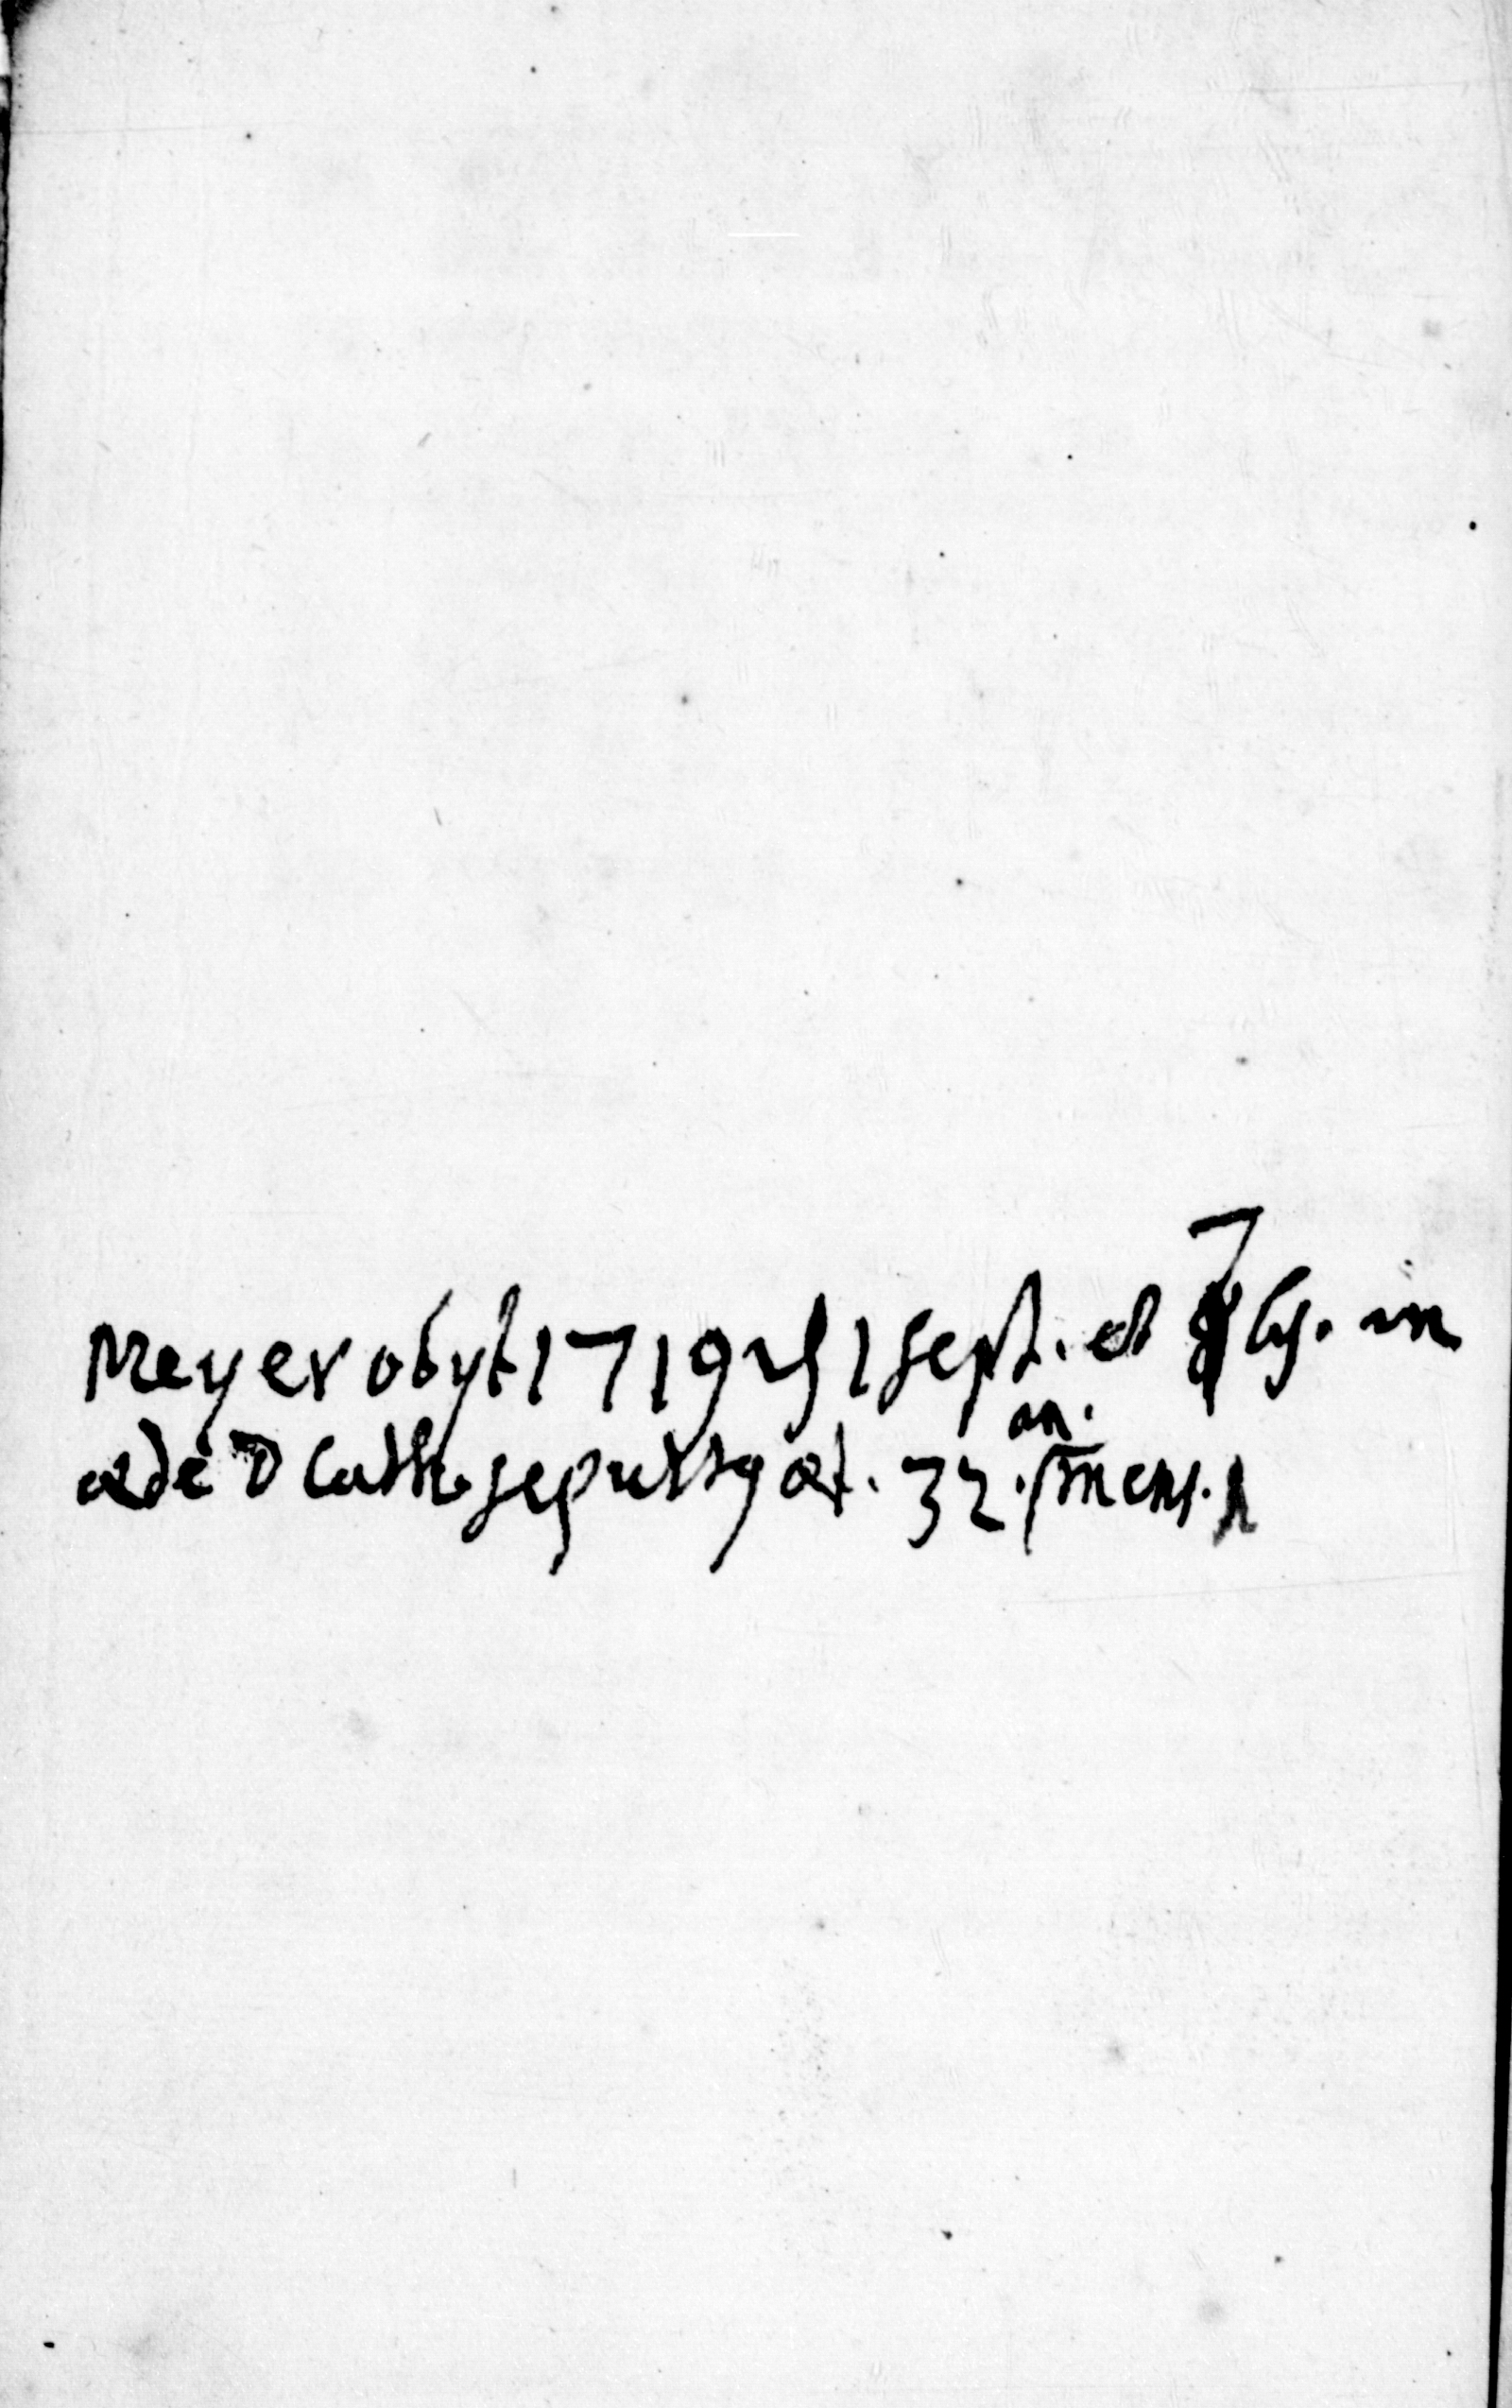 Meyer obyt 1719 ♃ 1 Sept. et 7 ej. in
æde D Cath. sepultq æt. 32. an. mens. 1